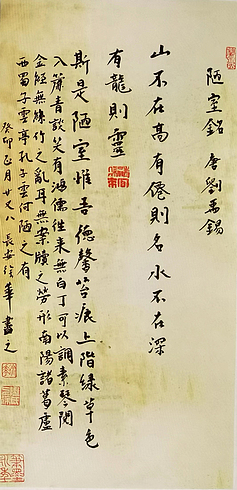 陋室銘 唐 劉禹錫
山不在高有僊則名水不在深
有龍則靈
斯是陋室惟吾德馨苔痕上階綠草色
入簾青談笑有鴻儒往來無白丁可以調素琴閱
金經無絲竹之亂耳無案牘之勞形南陽諸葛廬
西蜀子雲亭孔子雲何陋之有
癸卯正月廿又八 長安 華書之